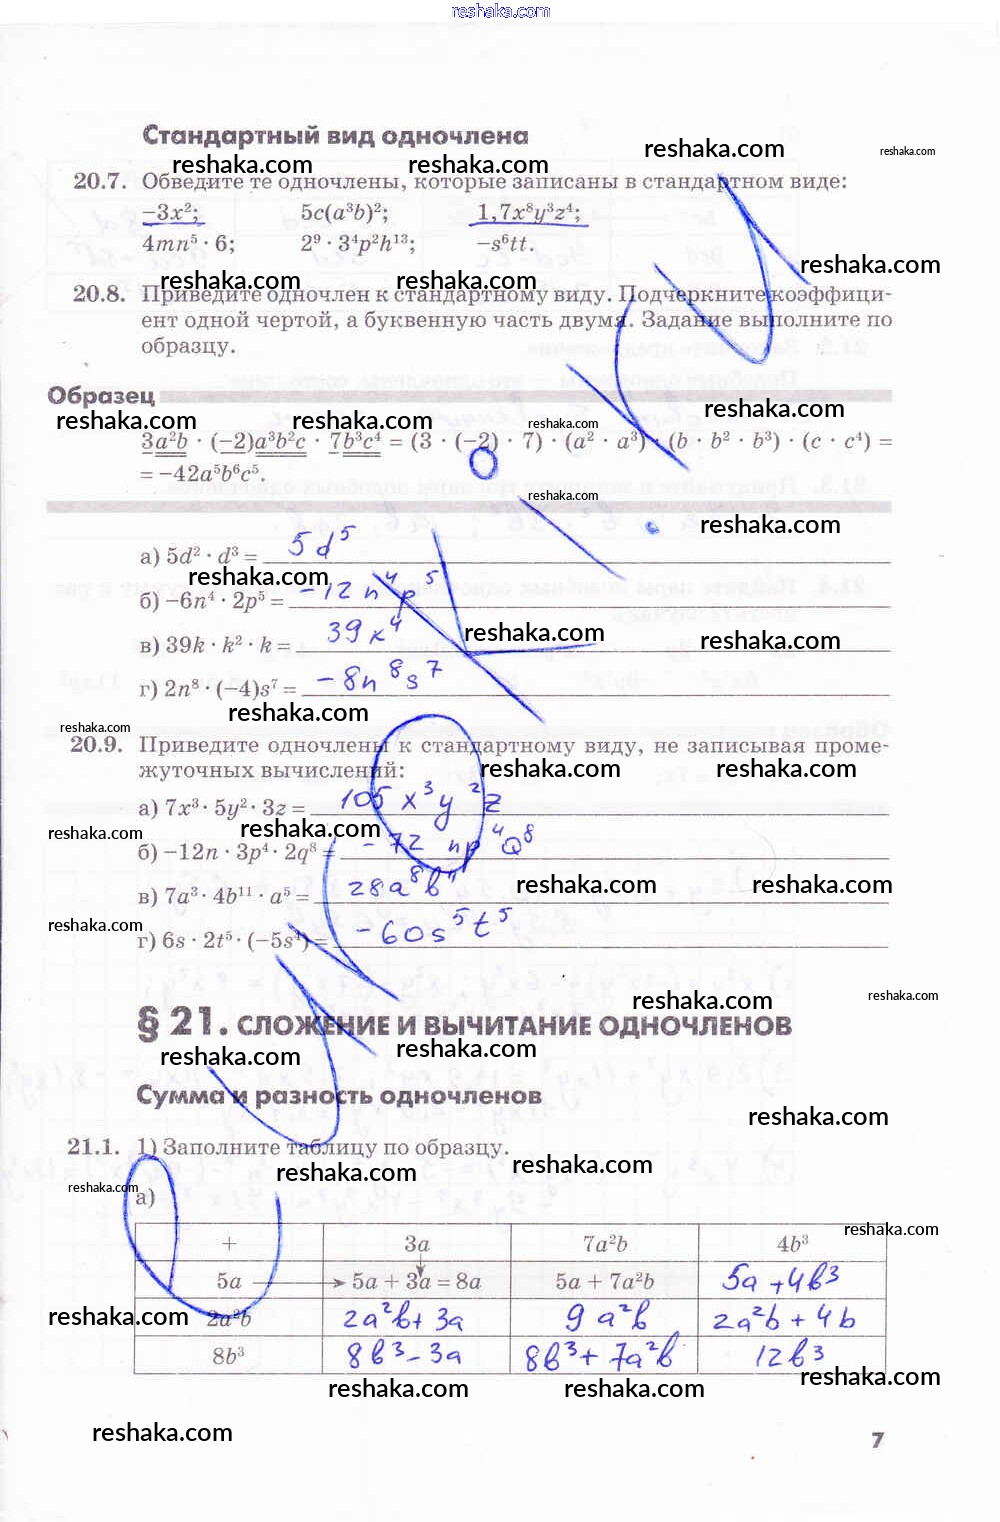 reshaka.com
Стандартный вид одночлена
reshaka.com reshaka.com reshaka.com reshaka.com
20.7. Обведите те одночлены, которые записаны в стандартном виде:
−3x²; 5c(a³b)²; 1,7x⁸y³z⁴;
4mn⁵ · 6; 2⁹ · 3⁴p²h¹³; −s⁶tt.
reshaka.com reshaka.com reshaka.com
20.8. Приведите одночлен к стандартному виду. Подчеркните коэффици-
ент одной чертой, а буквенную часть двумя. Задание выполните по
образцу.
Образец
reshaka.com reshaka.com reshaka.com reshaka.com
3a²b · (−2)a³b²c · 7b³c⁴ = (3 · (−2) · 7) · (a² · a³) · (b · b² · b³) · (c · c⁴) =
= −42a⁵b⁶c⁵.
reshaka.com
reshaka.com
а) 5d² · d³ = 5d⁵
reshaka.com
б) −6n⁴ · 2p⁵ = −12n⁴p⁵
reshaka.com reshaka.com
в) 39k · k² · k = 39k⁴
г) 2n⁸ · (−4)s⁷ = −8n⁸s⁷
reshaka.com
reshaka.com
20.9. Приведите одночлены к стандартному виду, не записывая проме-
жуточных вычислений:
reshaka.com reshaka.com
а) 7x³ · 5y² · 3z = 105x³y²z
reshaka.com reshaka.com
б) −12n · 3p⁴ · 2q⁸ = −72np⁴q⁸
reshaka.com reshaka.com
в) 7a³ · 4b¹¹ · a⁵ = 28a⁸b¹¹
reshaka.com
г) 6s · 2t⁵ · (−5s⁴) = −60s⁵t⁵
reshaka.com reshaka.com
§ 21. СЛОЖЕНИЕ И ВЫЧИТАНИЕ ОДНОЧЛЕНОВ
reshaka.com reshaka.com
Сумма и разность одночленов
reshaka.com
21.1. 1) Заполните таблицу по образцу.
reshaka.com reshaka.com
reshaka.com
а)
reshaka.com
+ 3a 7a²b 4b³
5a 5a + 3a = 8a 5a + 7a²b 5a + 4b³
reshaka.com
2a²b 2a²b + 3a 9a²b 2a²b + 4b
8b³ 8b³ − 3a 8b³ + 7a²b 12b³
reshaka.com reshaka.com reshaka.com
reshaka.com
7